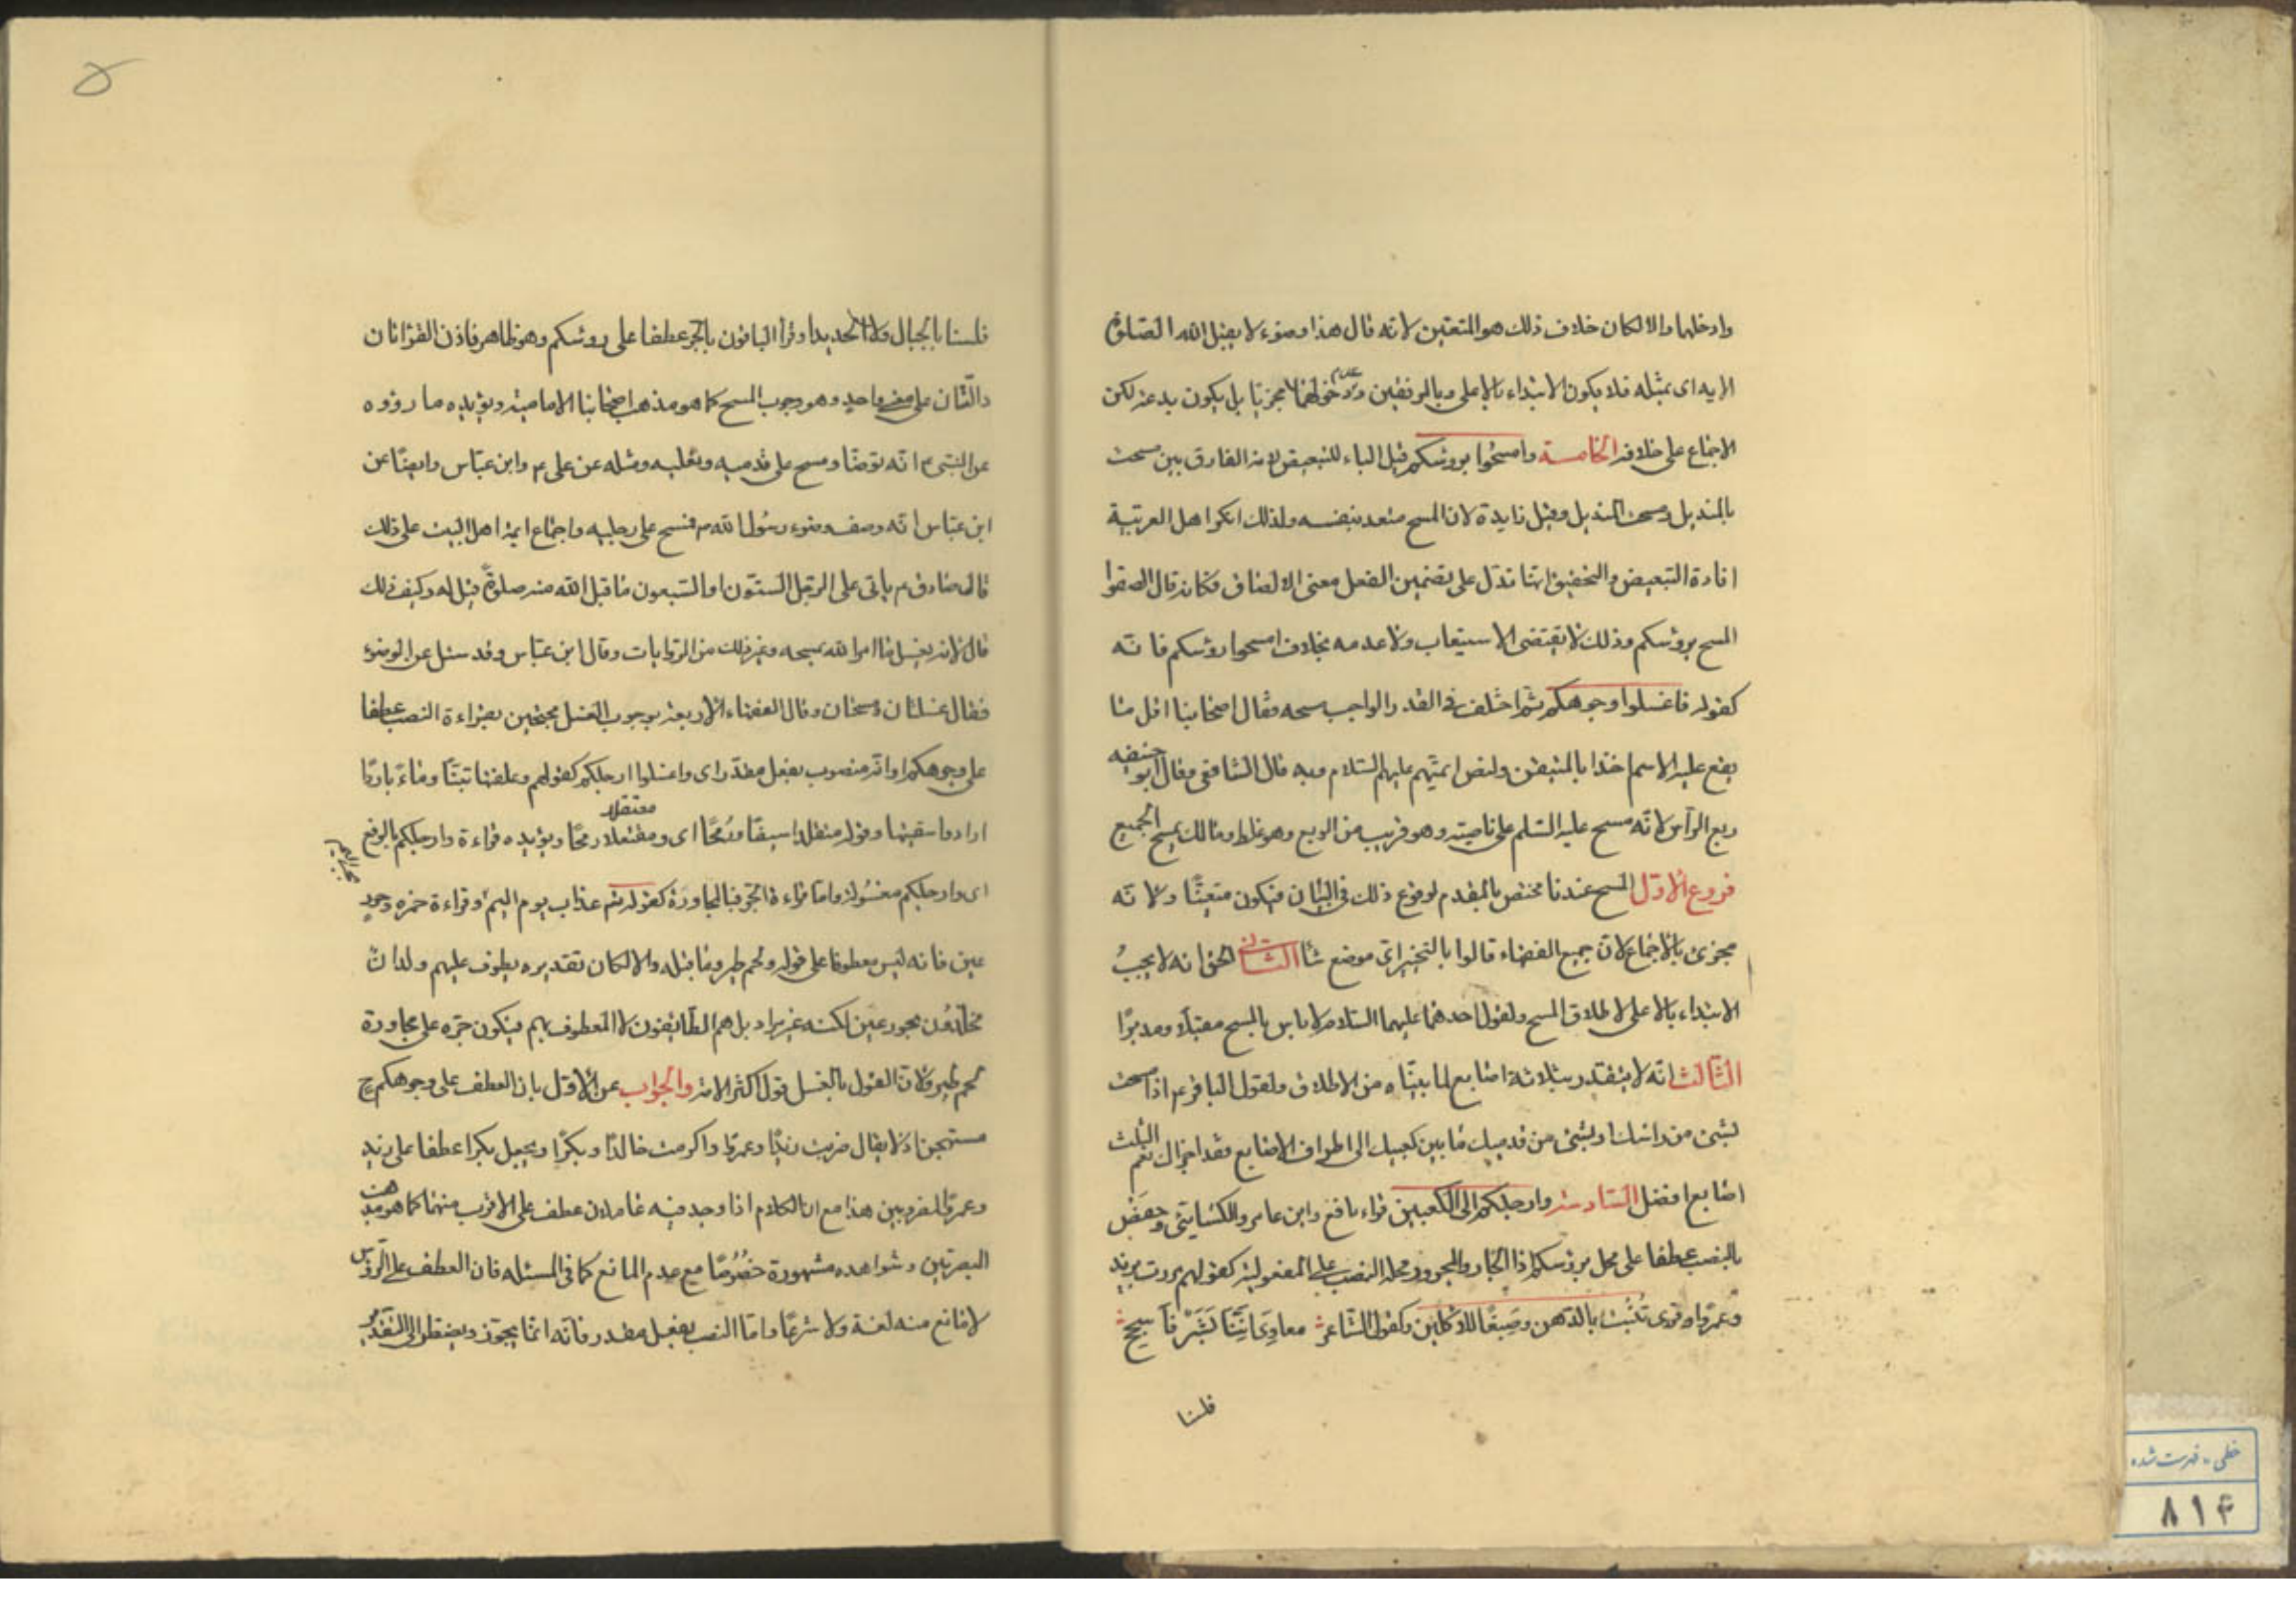 وادخلهما والا لكان خلاف ذلك هو المتعين لانه قال هذا وضوء لا يقبل الله الصلوة
الا به اى بمثله فلا يكون الابتداء بالاعلى وبالمرفقين وعدم دخولهما مجزيا بل يكون بدعة لكن
الاجماع على خلافه الخامسة وامسحوا برؤسكم قيل الباء للتبعيض لانه الفارق بين مسحت
بالمنديل ومسحت المنديل وقيل زايدة لان المسح متعد بنفسه ولذلك انكر اهل العربية
افادة التبعيض والتحقيق انها تدل على تضمين الفعل معنى الالصاق فكانه قال الصقوا
المسح برؤسكم وذلك لا يقتضى الاستيعاب ولا عدمه بخلاف امسحوا رؤسكم فانه
كقوله فاغسلوا وجوهكم ثم اختلف فى القدر الواجب مسحه فقال اصحابنا اقل ما
يقع عليه الاسم اخذا بالمتيقن ولنص ائمتهم عليهم السلام وبه قال الشافعى وقال ابو حنيفه
ربع الرأس لانه مسح عليه السلم على ناصيته وهو قريب من الربع وهو غلط ومالك يمسح الجميع
فروع الاول المسح عندنا مختص بالمقدم لوقوع ذلك فى البيان فيكون متعينا ولانه
مجزئ بالاجماع لان جميع الفقهاء قالوا بالتخيير اى موضع شا الثانى الحق انه لا يجب
الابتداء بالاعلى لاطلاق المسح ولقول احدهما عليهما السلام لا باس بالمسح مقبلا ومدبرا
الثالث انه لا يتقدر بثلاثة اصابع لما بيناه من الاطلاق ولقول الباقر ع اذا مسحت
بشئ من راسك او بشئ من قدميك ما بين كعبيك الى اطراف الاصابع فقد اجزاك نعم الثلث
اصابع افضل السادسة وارجلكم الى الكعبين قراء نافع وابن عامر والكسايئ وحفص
بالنصب عطفا على محل برؤسكم اذ الجار والمجرور محله النصب على المفعولية كقولهم مررت بزيد
وعمروا وقرى تنبت بالدهن وصبغا للاكلين وكقول الشاعر معاوى اننا بشر فاسجح
فلسنا
فلسنا بالجبال ولا الحديدا وقرأ الباقون بالجر عطفا على رؤسكم وهو ظاهر فاذن القرائتان
دالتان على معنى واحد وهو وجوب المسح كما هو مذهب اصحابنا الامامية ويؤيده ما رووه
عن النبى ص انه توضأ ومسح على قدميه ونعليه ومثله عن على ع وابن عباس وايضا عن
ابن عباس انه وصف وضوء رسول الله ص فمسح على رجليه واجماع ايمة اهل البيت على ذلك
قال صادق ع ياتى على الرجل الستون او السبعون ما قبل الله منه صلوة قيل له وكيف ذلك
قال لانه يغسل ما امر الله بمسحه وغير ذلك من الروايات وقال ابن عباس وقد سئل عن الوضوء
فقال غسلتان ومسحتان وقال الفقهاء الاربعة بوجوب الغسل محتجين بقراءة النصب عطفا
على وجوهكم او انه منصوب بفعل مقدر اى واغسلوا ارجلكم كقولهم وعلفتها تبنا وماء باردا
اراد وسقيتها وقوله متقلدا سيفا ورمحا اى ومعتقلا رمحا ويؤيده قراءة وارجلكم بالرفع
معتقلا
اى وارجلكم مغسولة واما قراءة الجر فبالمجاورة كقوله تم عذاب يوم اليم وقراءة حمزه وحور
عين فانه ليس معطوفا على قوله ولحم طير وما قبله والا لكان تقديره يطوف عليهم ولدان
مخلدون بحور عين لكنه غير مراد بل هم الطايفون لا المطوف بهم فيكون جره على مجاورة
لحم طير ولان القول بالغسل قول اكثر الامة والجواب عن الاول بان العطف على وجوهكم ح
مستهجن اذ لا يقال ضربت زيدا وعمروا واكرمت خالدا وبكرا ويجعل بكرا عطفا على زيد
وعمرو المضروبين هذا مع ان الكلام اذا وجد فيه عاملان عطف على الاقرب منهما كما هو مذهب
البصريين وشواهده مشهورة خصوصا مع عدم المانع كما فى المسئله فان العطف على الرؤس
لا مانع منه لغة ولا شرعا واما النصب بفعل مقدر فانه انما يجوز ويضطر الى التقدير
خطى - فهرست شده
۸۱۴